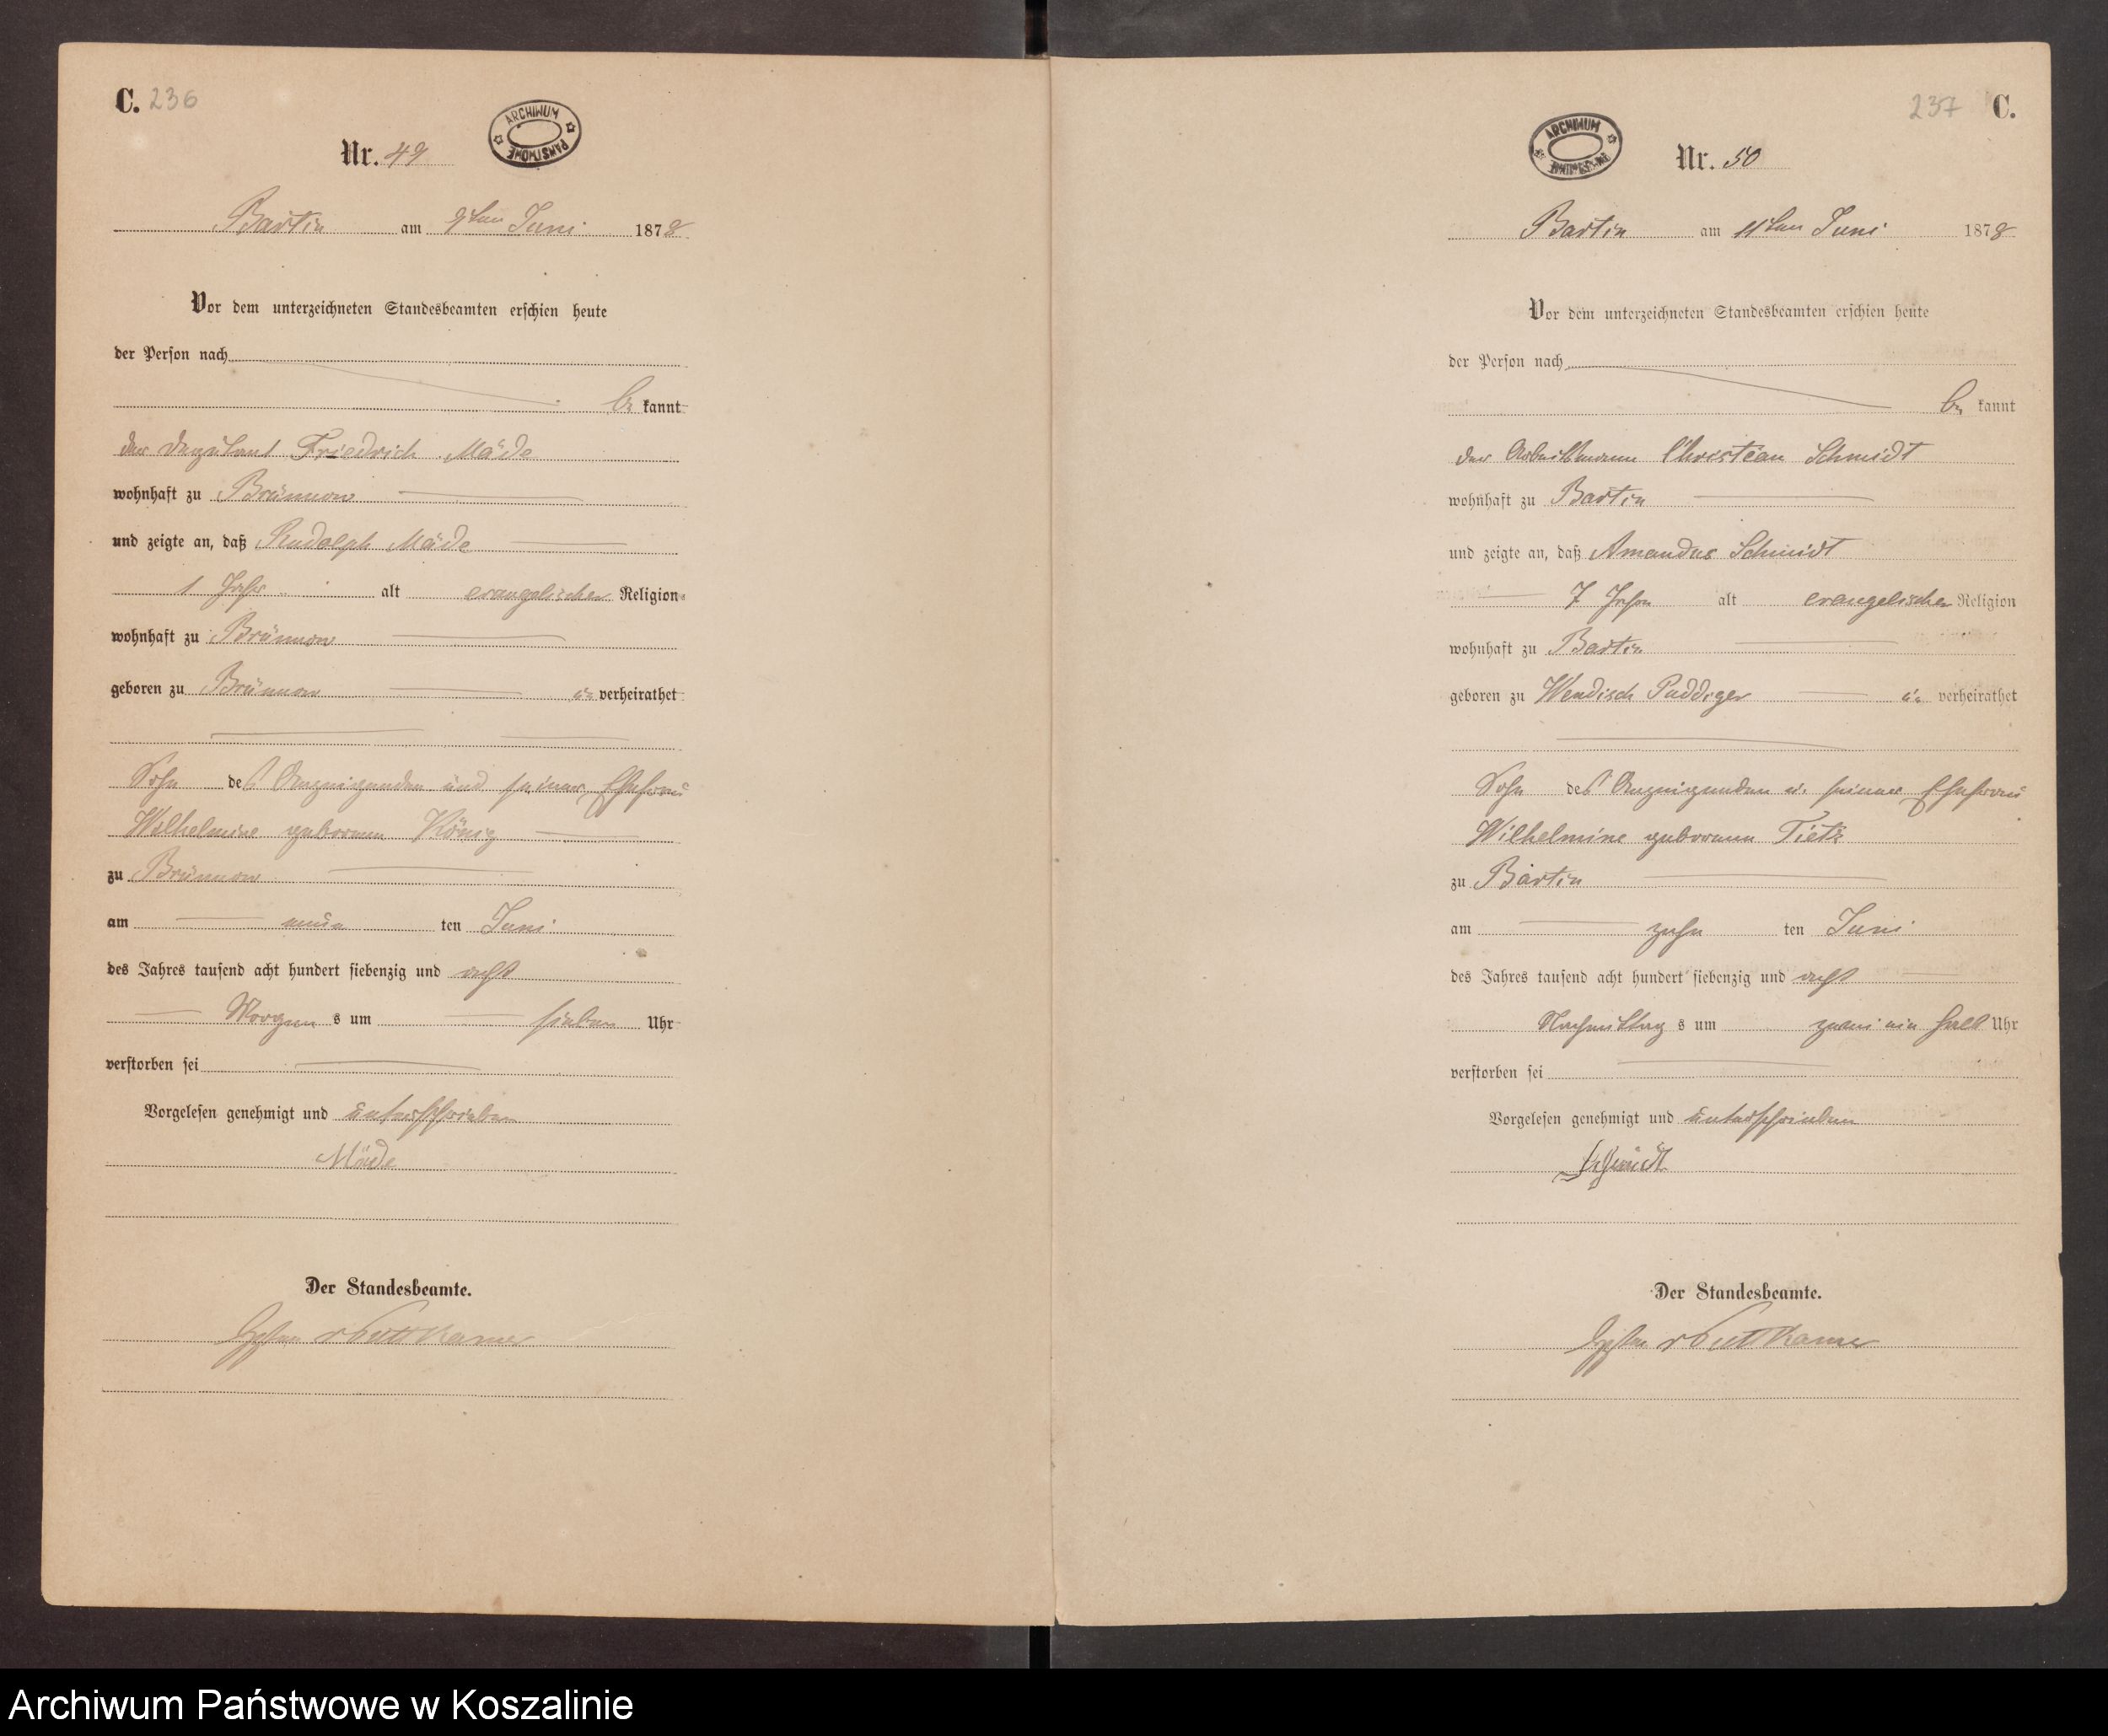 C. 236
ARCHIWUM PAŃSTWOWE
Nr. 49
Bartin am 9ten Juni 1878
Vor dem unterzeichneten Standesbeamten erschien heute
der Person nach
be kannt
der Deputant Friedrich Mäde
wohnhaft zu Brünnow
und zeigte an, daß Rudolph Mäde
1 Jahr alt evangelischer Religion
wohnhaft zu Brünnow
geboren zu Brünnow un verheirathet
Sohn des Anzeigenden und seiner Ehefrau
Wilhelmine geborenen König
zu Brünnow
am neun ten Juni
des Jahres tausend acht hundert siebenzig und acht
Morgen s um sieben Uhr
verstorben sei
Vorgelesen genehmigt und unterschrieben
Mäde
Der Standesbeamte.
v Puttkamer
237 C.
ARCHIWUM PAŃSTWOWE
Nr. 50
Bartin am 11ten Juni 1878
Vor dem unterzeichneten Standesbeamten erschien heute
der Person nach
be kannt
der Arbeitsmann Christian Schmidt
wohnhaft zu Bartin
und zeigte an, daß Amandus Schmidt
7 Jahre alt evangelischer Religion
wohnhaft zu Bartin
geboren zu Wendisch Puddiger un verheirathet
Sohn des Anzeigenden u. seiner Ehefrau
Wilhelmine geborenen Tietz
zu Bartin
am zehn ten Juni
des Jahres tausend acht hundert siebenzig und acht
Nachmittag s um zwei ein halb Uhr
verstorben sei
Vorgelesen genehmigt und unterschrieben
Schmidt
Der Standesbeamte.
v Puttkamer
Archiwum Państwowe w Koszalinie